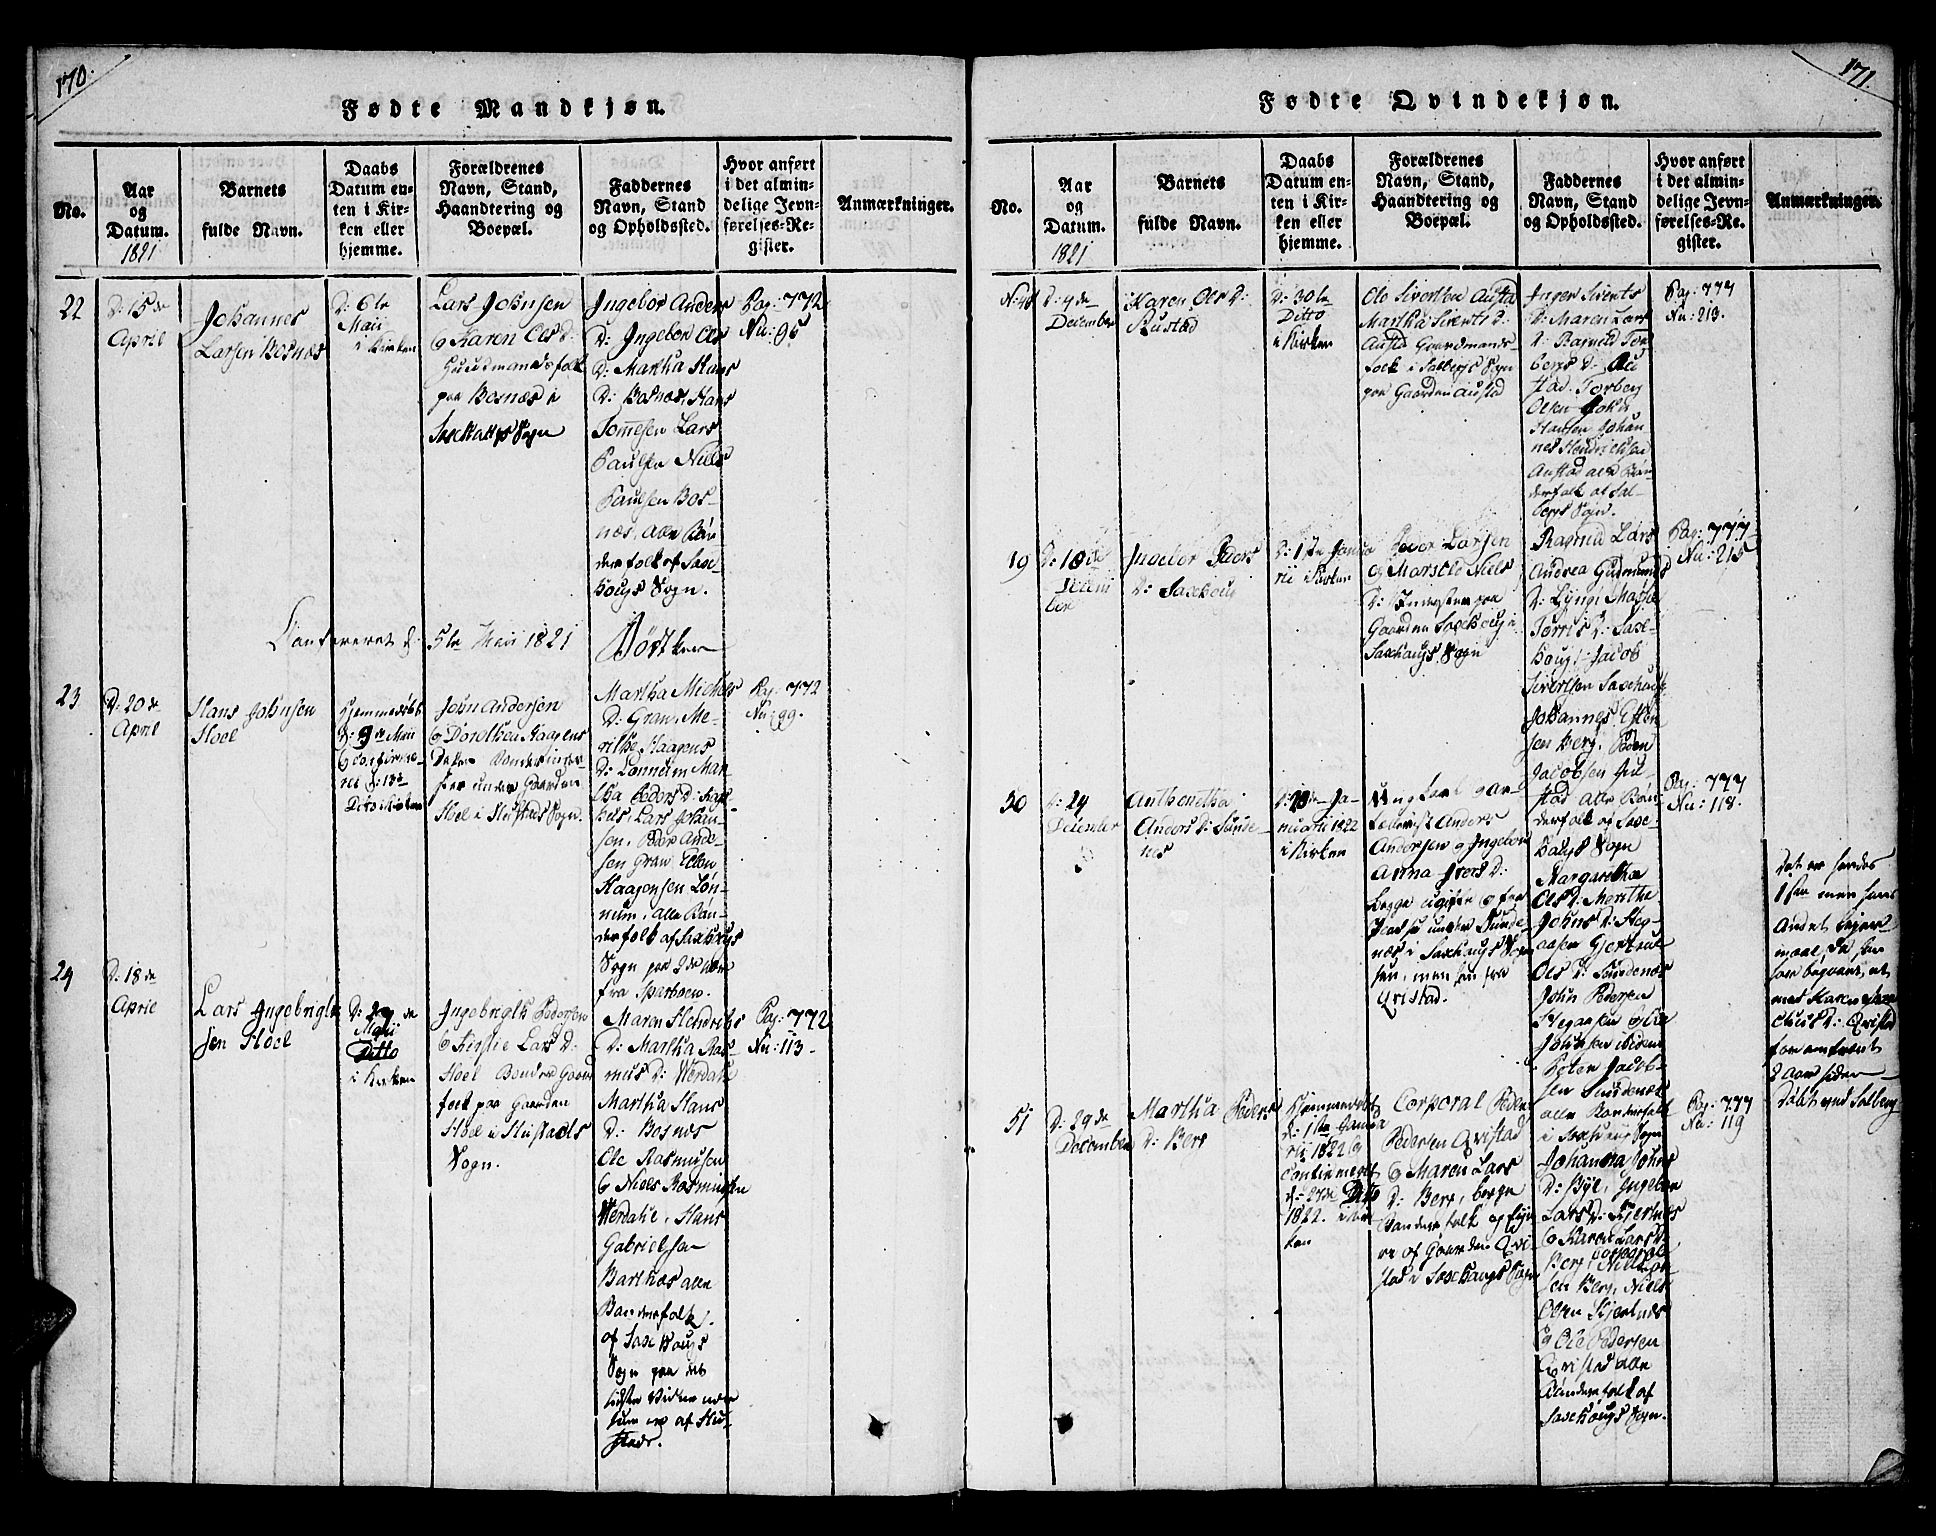 170.
Fødte Mandkjøn.
No.
Aar
og
Datum.
1821
Barnets
fulde Navn.
Daabs
Datum en-
ten i Kir-
ken eller
hjemme.
Forældrenes
Navn, Stand,
Haandtering og
Boepæl.
Faddernes
Navn, Stand
og Opholdssted.
Hvor anført
i det almin-
delige Jevn-
førelses-Re-
gister.
Anmærkninger.
22
D: 15de
April
Johannes
Larsen Bosnæs
D: 6te
Maii
i Kirken
Lars Johnsen
og Karen Oles D:
Huusmandsfolk
paa Bosnæs i
Saxhaugs Sogn
Ingebor Anders
D: Ingebor Ols
D: Martha Hans
D: Bosnæs, Hans
Tomesen Lars
Paulsen Niels
Paulsen Bos-
næs, alle Bøn
derfolk af Saxe-
hougs Sogn.
Pag: 772
Nu: 95
Confereret d: 5te Maii 1821
23
D: 20de
April
Hans Johnsen
Hoel
Hjemmedøbt
D: 9de Maii
og confirme-
ret d: 13de
Dito i Kirken
John Andersen
og Dorethea Haagens
Datter
under Gaarden
Hoel i Hustads Sogn.
Martha Michels
D: Gran, Me-
rithe Haagens
D: Lønnum Mar-
tha Peders D:
Lars Johan-
sen, Peder Ande-
sen Gran Ellen
Haagensen Løn-
num, alle Bøn-
derfolk af Saxhougs
Sogn paa 2de nær
fra Sparboen.
Pag: 772
Nu: 99.
24
D: 18de
April
Lars Ingebrigt
sen Hoel
D: 27de
Maii
Ditto
i Kirken
Ingebrigth Pedersen
og Kirstie Lars D:
Hoel Bonde og Gaard
folk paa Gaarden
Hoel i Hustads
Sogn.
Maren Hendrichs
D: Martha Ras-
mus D: Werdalie
Martha Hans
D: Bosnæs
Ole Rasmusen
og Niels Rasmusen
Werdalie, Hans
Gabrielsen
Barthnes alle
Bønderfolk
af Saxehougs
Sogn paa de
som er af Hu-
stads.
Pag: 772
Nu: 113.
171.
Fødte Qvindekjøn.
No.
Aar
og
Datum.
1821
Barnets
fulde Navn.
Daabs
Datum en-
ten i Kir-
ken eller
hjemme.
Forældrenes
Navn, Stand,
Haandtering og
Boepæl.
Faddernes
Navn, Stand
og Opholdssted.
Hvor anført
i det almin-
delige Jevn-
førelses-Re-
gister.
Anmærkninger.
D: 4de
December
Karen Ols D:
Austad
D: 30te
Ditto
i Kirken
Ole Sivertsen Austa
Martha Siverts D:
Austad Gaardmands-
folk i Salbergs Sogn
paa Gaarden Austad
Inger Siverts
D: Maren Lars
D: Ragnild Tor
bergs D: Au
stad. Torberg
Olsen
Hansen Johan
nes Hendrichsen
Austad alle Bøn
derfolk af Sal-
bergs Sogn.
Pag: 777
Nu: 213.
19
D: 18de
Decem
ber
Ingebor Peders
D: Saxehoug
D: 1ste Janua
rii i Kirken
Peder Larsen
og Marethe Niels
D: Inderster paa
Gaarden Saxehoug i
Saxhaugs Sogn
Ragnild Lars
Andrea Gudmunds
D: Lyng, Marie
Torris D: Saxe-
houg, Jacob
Sivertsen Saxehoug
Johannes Esten
sen Berg, Peder
Jacobsen Ju-
stad alle Bøn-
derfolk af Saxe-
hougs Sogn
Pag: 777
Nu: 215
50
d: 24
December
Anthonetha
Anders D: Sunde-
nes
Ja-
nuarii 1822
i Kirken
Ungkarl og ar-
tillerist Anders
Andersen og Ingebor
Anna Ivers D:
begge ugifte og fra
under Sunde-
næs i Saxhougs Sogn
hun, men han fra
Qvistad.
Margaretha
Ols D: Merethe
Johns D: Steg-
aasen Gjertrue
Ols D: Sundenæs
John Pedersen
Stegaasen og Ole
Johnsen
Peter Jacob-
sen Sundenæs
alle Bønderfolk
i Saxhaugs Sogn
Pag: 777
Nu: 118.
Det er hendes
1ste men hans
Andet Leier-
maal, da han
har begaaet, et
med Karen
D: Qvistad
for omtrent
2 Aar siden
Døbt ved Salberg
51
D: 29de
December
Martha Peders
D: Berg
Hjemmedøbt
d: 1ste Janua
rii 1822 og
Confirmeret
d: 27de Dito
1822. i Kir
ken
Corporal Peder
Pedersen Qvistad
og Maren Lars
D: Berg, begge
Bønderfolk og Eye
re af Gaarden Qvi-
stad i Saxehougs Sogn
Johanna Johns
D: Bye, Ingebor
Lars D: Kjertnæs
og Karen Lars D:
Berg, Corporal
Berg, Niels
Olsen Kjertnæs
og Ole Pedersen
Qvistad alle
Bønderfolk af
Saxehougs Sogn.
Pag: 777
Nu: 119